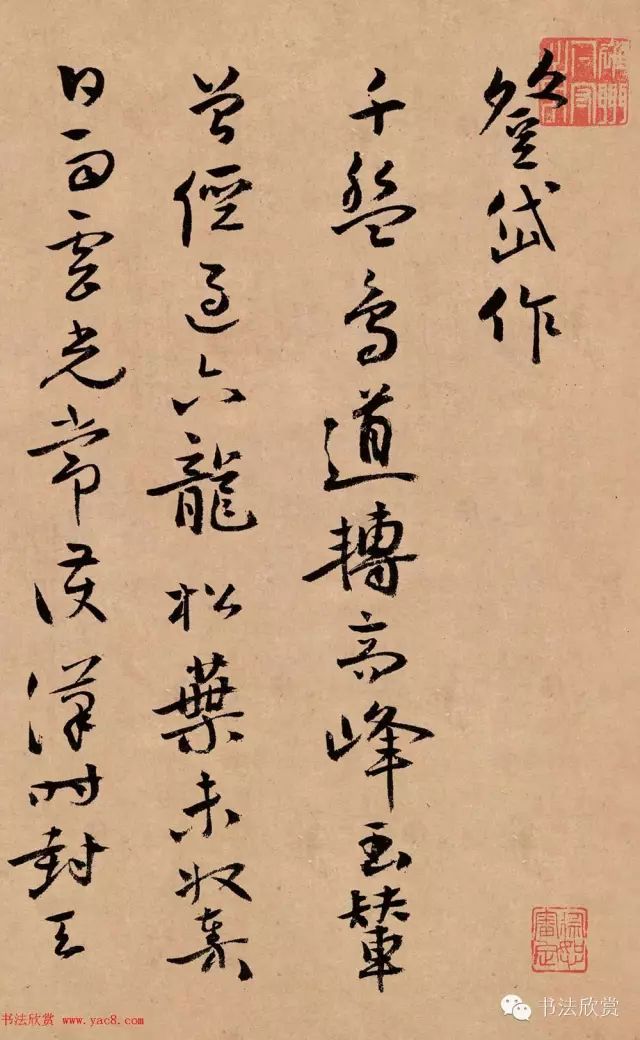 登岱作
千盤鳥道轉高峰玉輦
曾經過六龍松葉未收秦
日雨雲光常護漢時封天
书法欣赏
书法欣赏 www.yac8.com